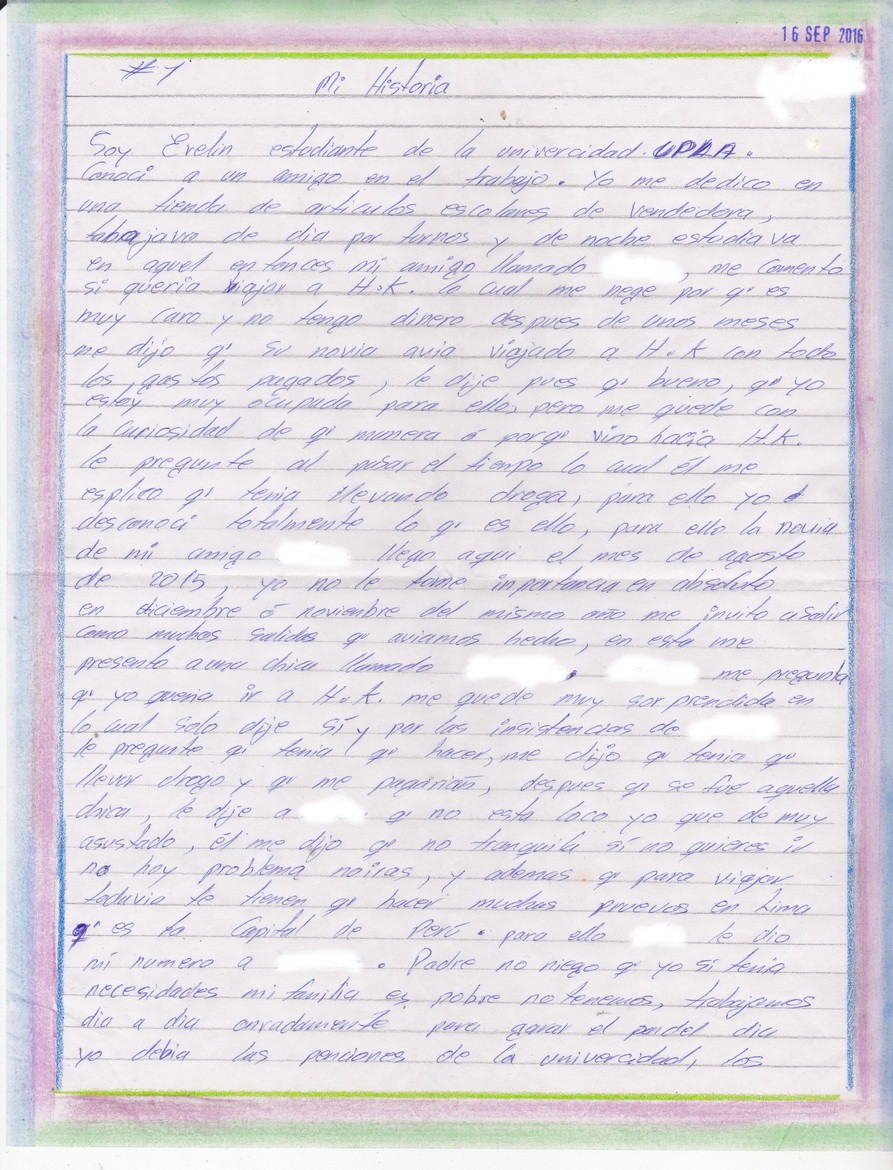 16 SEP 2016
#1
Mi Historia
Soy Evelin estudiante de la univercidad UPLA.
Conoci a un amigo en el trabajo. Yo me dedico en
una tienda de articulos escolares de vendedora,
tabajava de dia por turnos y de noche estudiava
en aquel entonces mi amigo llamado , me comento
si queria viajar a H.K. lo cual me nege por q' es
muy caro y no tengo dinero despues de unos meses
me dijo q' su novia avia viajado a H.K con todo
los gastos pagados, le dije pues q' bueno, q' yo
estoy muy ocupada para ello, pero me quede con
la curiosidad de q' munera ó porq' vino hacia H.K.
le pregunte al pasar el tiempo lo cual él me
esplico q' tenia llevando droga, para ello yo
desconoci totalmente lo q' es ello, para ello la novia
de mi amigo llego aqui el mes de agosto
de 2015, yo no le tome inportancia en absoluto
en diciembre ó noviembre del mismo año me invito a salir
como muchas salidas q' aviamos hecho, en esta me
presento a una chica llamado me pregunta
q' yo queria ir a H.K. me quede muy sorprendida en
lo cual solo dije sí y por las insistencias de
le pregunte q' tenia q' hacer, me dijo q' tenia q'
llevar droga y q' me pagarian, despues q' se fue aquella
chica, le dije a q' no esta loco yo que de muy
asustado, él me dijo q' no tranquila sí no quieres ir
no hoy problema noiras, y ademas q' para viajar
todavia te tienen q' hacer muchas pruevas en Lima
q' es la Capital de Perú. para ello le dio
mi numero a . Padre no niego q' yo si tenia
necesidades mi familia es pobre no tenemos, trabajamos
dia a dia onradamente para ganar el pandel dia
yo debia las penciones de la univercidad, los